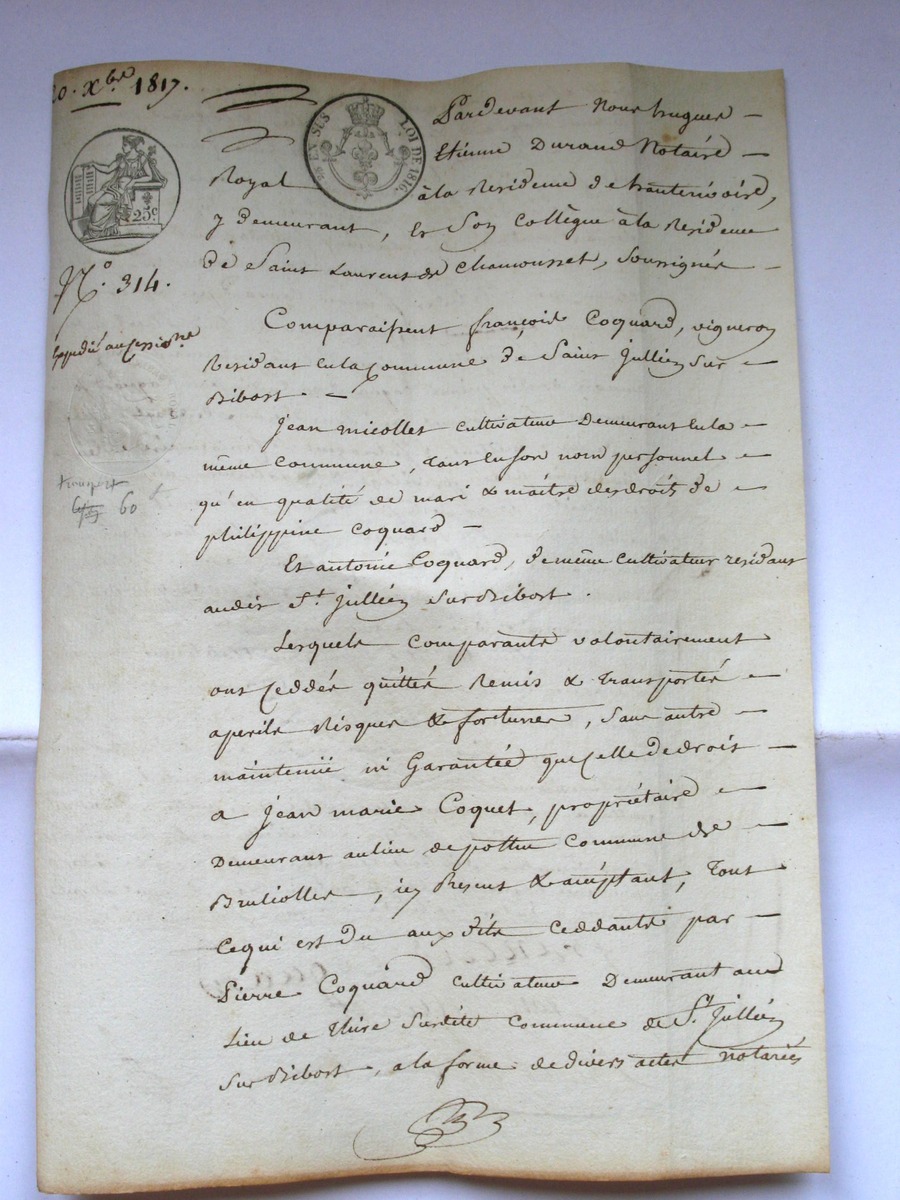 20. Xbre 1817.
EN SUS
LOI DE 1816.
25c
N.° 314.
60
Pardevant Nous hugues
Etienne Durand Notaire
Royal à la Residence de hauterivoire,
y demeurant, et Son Collègue à la Residence
de Saint Laurent de Chamousset, Soussignés
Comparaissent françois Coquard, vigneron
Residant en la Commune de Saint Jullien Sur
Bibost.
Jean micollet cultivateur Demeurant en la
même commune, tant en son nom personnel
qu'en qualité de mari & maitre des droits de
philippine Coquard
Et antoine Coquard, de même cultivateur residant
audit St. Jullien Sur Bibost.
Lesquels comparants volontairement
ont ceddés quittés Remis & transportés
a perils Risques & fortunes, Sans autre
maintenüe ni Garantée que celle de droit
a Jean marie Coquet, propriétaire
Demeurant au lieu de commune de
Brulioller, icy Present & acceptant, tout
ce qui est du aux dits ceddants par
Pierre Coquard cultivateur Demeurant au
Lieu de Surdite commune de St. Jullien
Sur Bibost, a la forme de divers actes notariés